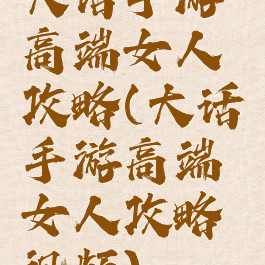 大话手游
高端女人
攻略(大话
手游高端
女人攻略
视频)